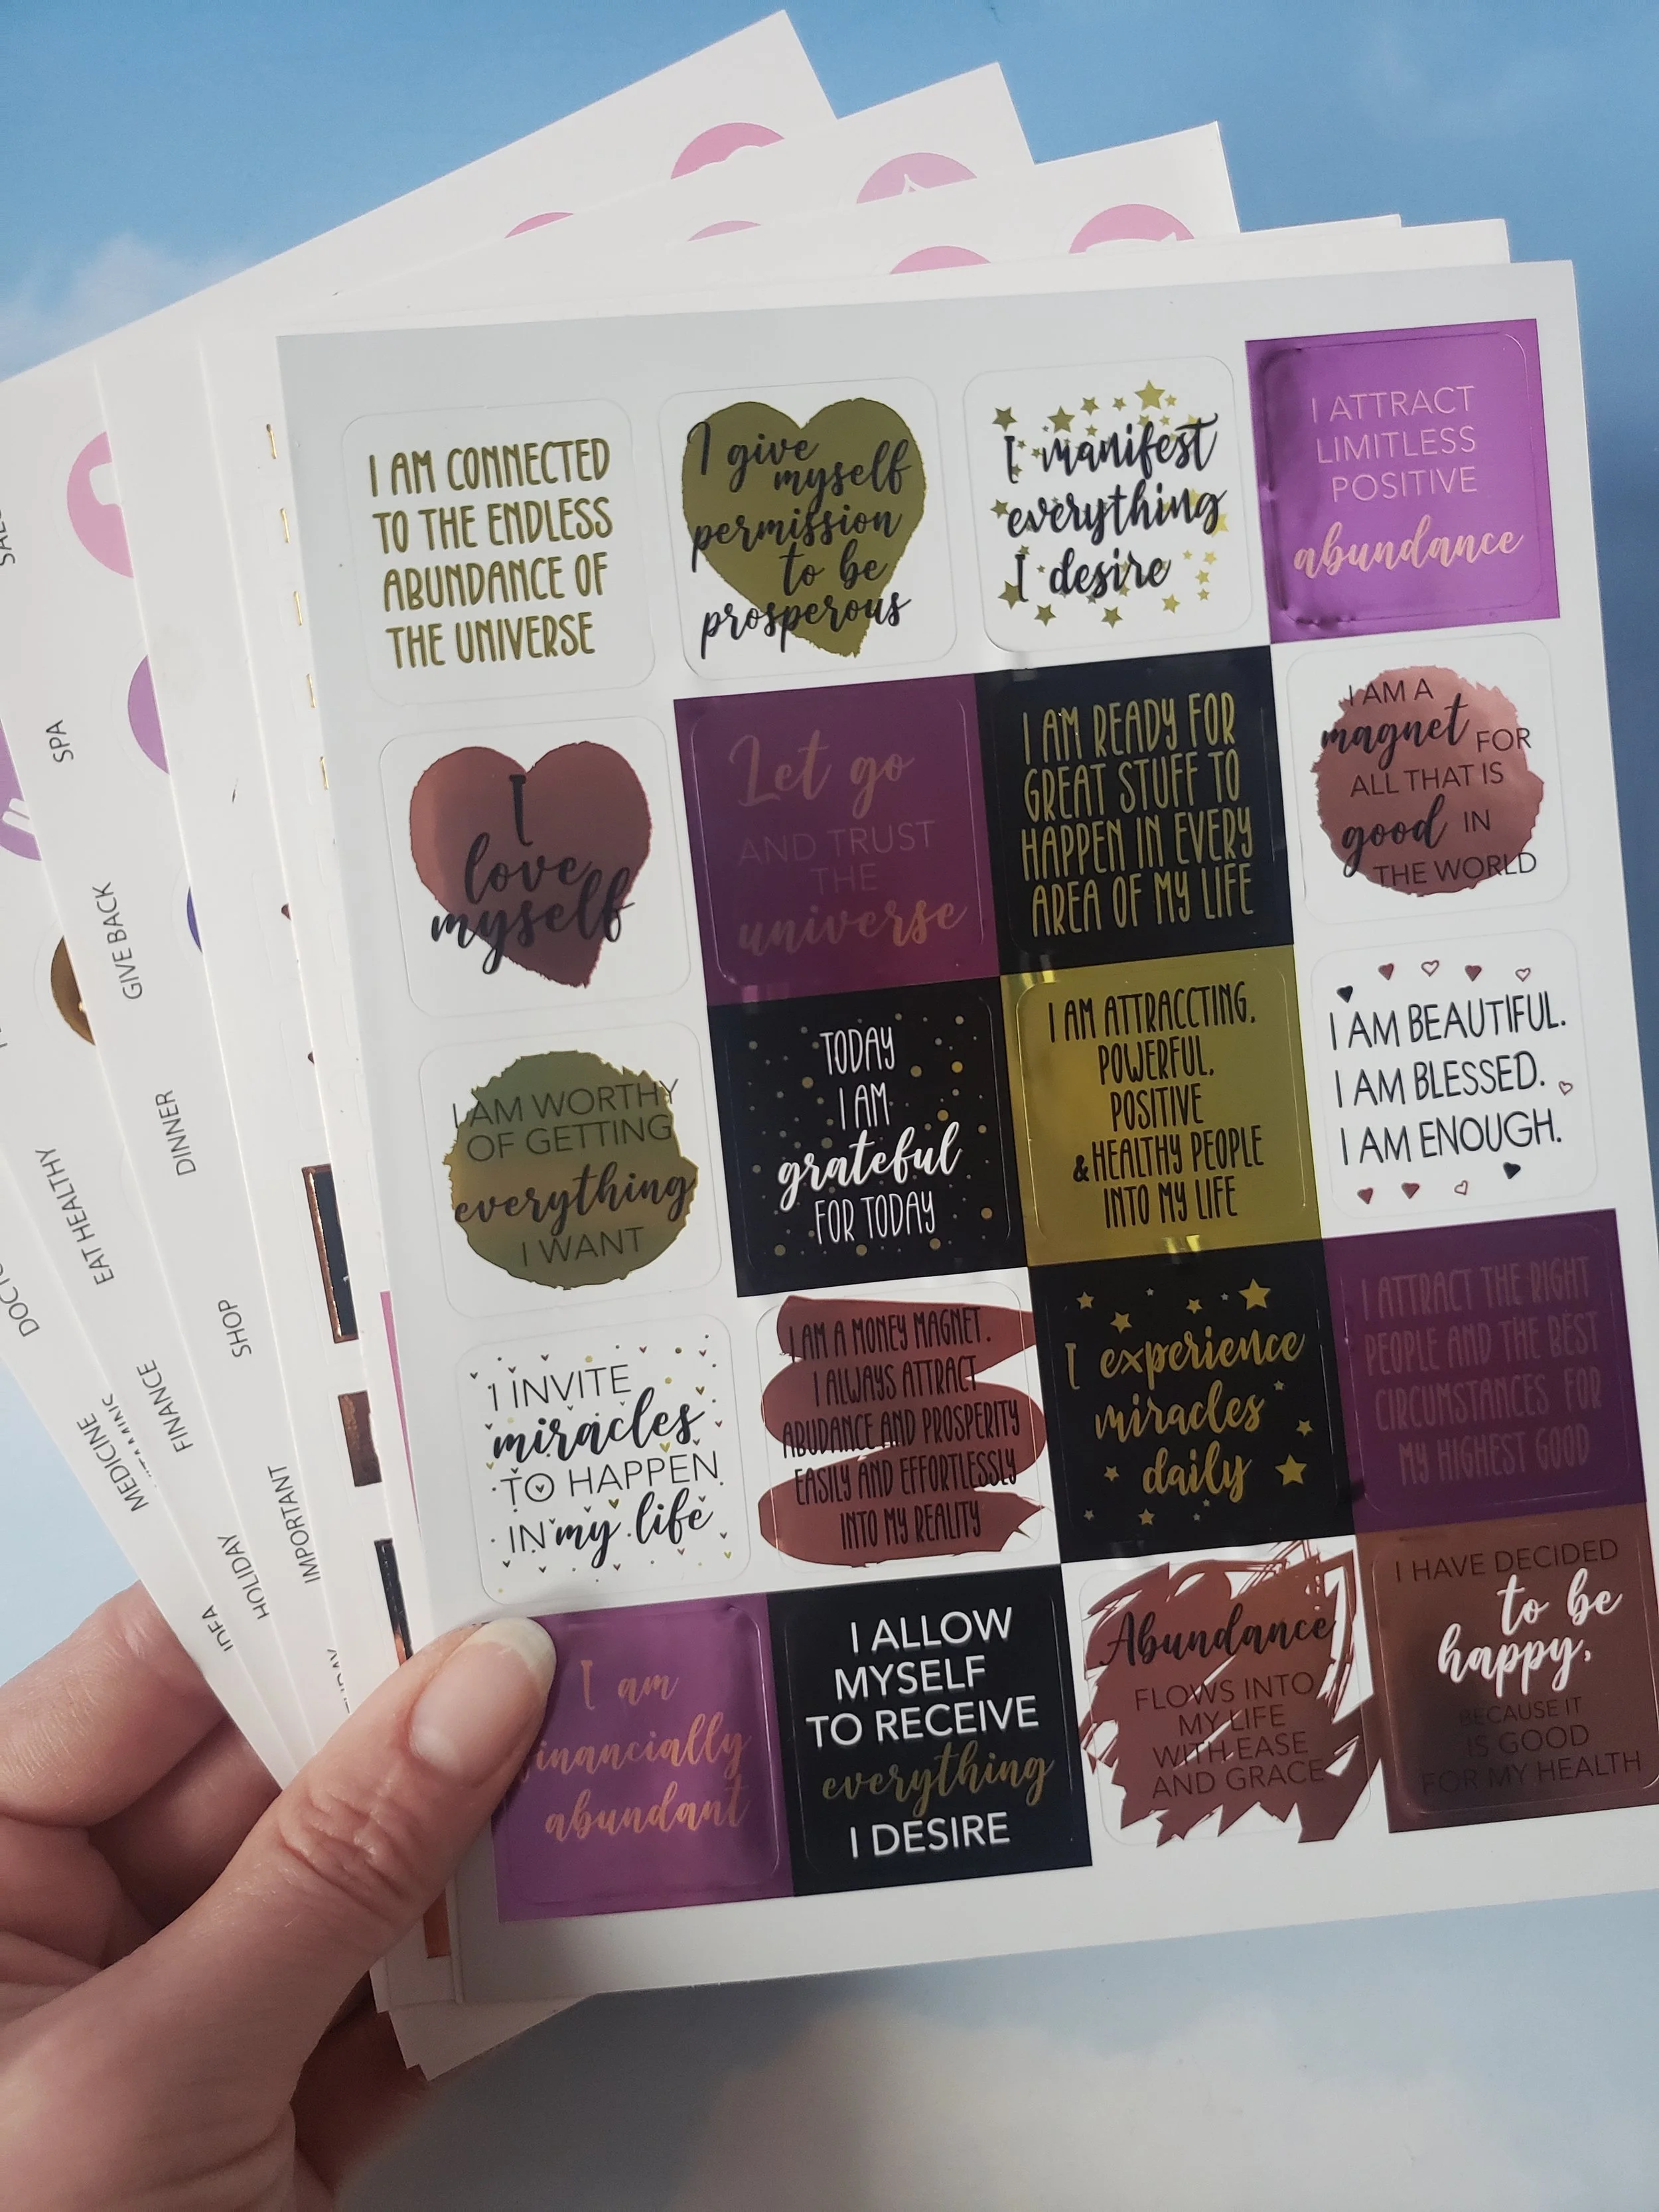 I AM CONNECTED
TO THE ENDLESS
ABUNDANCE OF
THE UNIVERSE
I give
myself
permission
to be
prosperous
I manifest
everything
I desire
I ATTRACT
LIMITLESS
POSITIVE
abundance
I
love
myself
Let go
AND TRUST
THE
universe
I AM READY FOR
GREAT STUFF TO
HAPPEN IN EVERY
AREA OF MY LIFE
I AM A
magnet FOR
ALL THAT IS
good IN
THE WORLD
I AM WORTHY
OF GETTING
everything
I WANT
TODAY
I AM
grateful
FOR TODAY
I AM ATTRACCTING,
POWERFUL,
POSITIVE
&HEALTHY PEOPLE
INTO MY LIFE
I AM BEAUTIFUL.
I AM BLESSED.
I AM ENOUGH.
I INVITE
miracles
TO HAPPEN
IN my life
I AM A MONEY MAGNET.
I ALWAYS ATTRACT
ABUDANCE AND PROSPERITY
EASILY AND EFFORTLESSLY
INTO MY REALITY
I experience
miracles
daily
I ATTRACT THE RIGHT
PEOPLE AND THE BEST
CIRCUMSTANCES FOR
MY HIGHEST GOOD
I am
inancially
abundant
I ALLOW
MYSELF
TO RECEIVE
everything
I DESIRE
Abundance
FLOWS INTO
MY LIFE
WITH EASE
AND GRACE
I HAVE DECIDED
to be
happy,
BECAUSE IT
IS GOOD
FOR MY HEALTH
SPA
GIVE BACK
DINNER
EAT HEALTHY
SHOP
FINANCE
MEDICINE
IMPORTANT
HOLIDAY